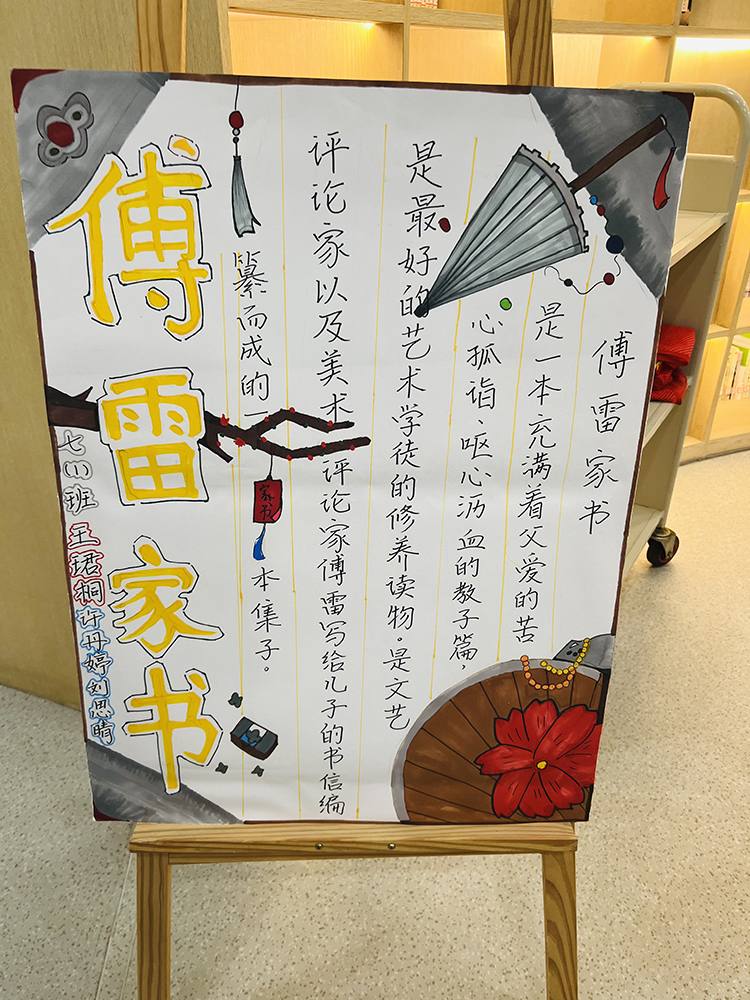 傅雷家书
是一本充满着父爱的苦
心孤诣、呕心沥血的教子篇，
是最好的艺术学徒的修养读物。是文艺
评论家以及美术评论家傅雷写给儿子的书信编
纂而成的一本集子。
家书
傅雷家书
七(1)班 王珺桐 许丹婷 刘思晴